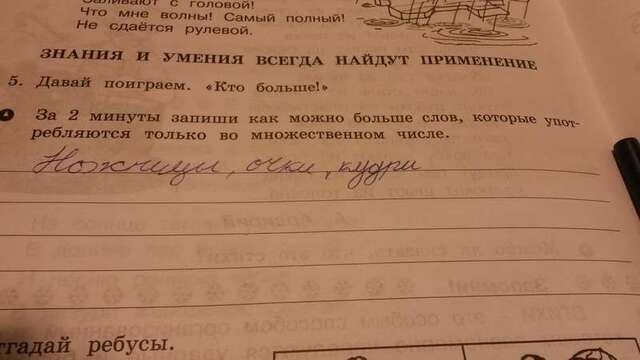 Заливают с головой!
Что мне волны! Самый полный!
Не сдаётся рулевой.
ЗНАНИЯ И УМЕНИЯ ВСЕГДА НАЙДУТ ПРИМЕНЕНИЕ
5. Давай поиграем. «Кто больше!»
За 2 минуты запиши как можно больше слов, которые упот-
ребляются только во множественном числе.
Ножницы, очки, кудри
тгадай ребусы.